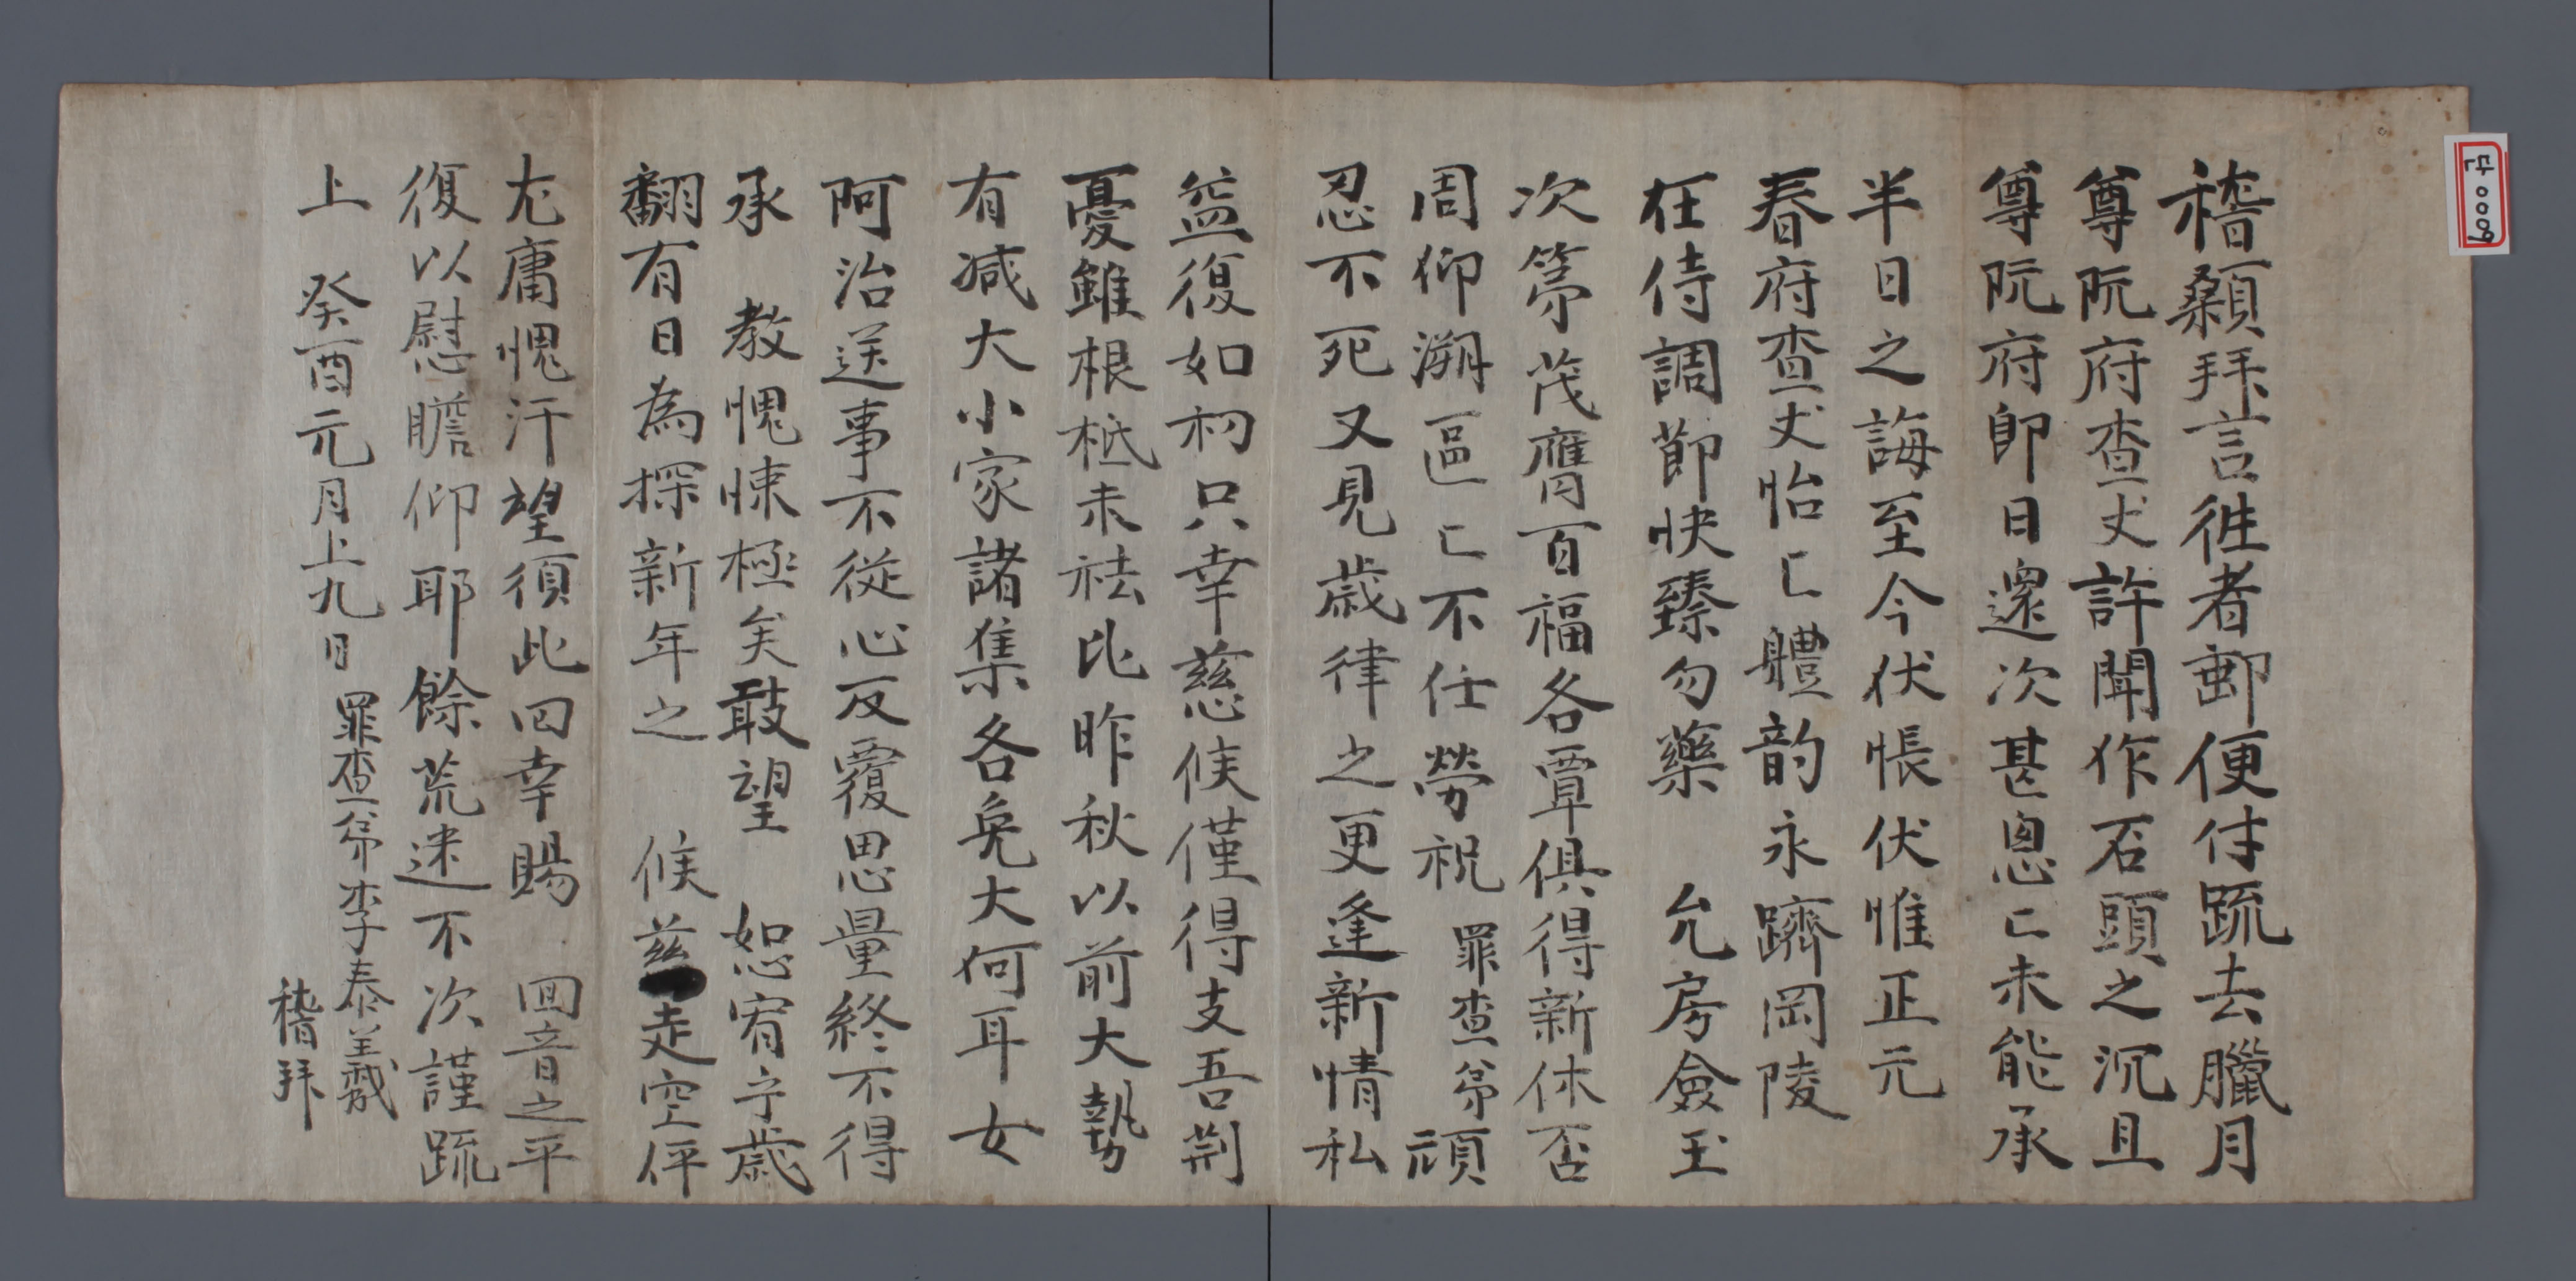 稽顙拜言徃者郵便付疏去臘月
尊阮府査丈許聞作石頭之沉且
尊阮府卽日還次甚悤〻未能承
半日之誨至今伏悵伏惟正元
春府査丈怡〻體韵永躋岡陵
在侍調節快臻勿藥 允房僉玉
次第茂膺百福各覃俱得新休否
周仰溯區〻不任勞祝 罪査弟頑
忍不死又見歲律之更逢新情私
益復如初只幸慈候僅得支吾荆
憂雖根柢未祛比昨秋以前大勢
有减大小家諸集各免大何耳女
阿治送事不從心反覆思量終不得
承 敎愧悚極矣敢望 恕宥亍歲
翻有日為探新年之 候玆走空伻
尤庸愧汗望須此回幸賜 回音之平
復以慰瞻仰耶餘荒迷不次謹疏
上 癸酉元月上九日 罪査弟李泰羲
稽拜
단0009